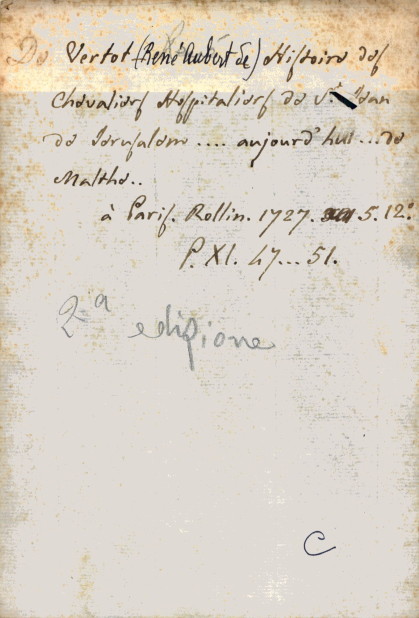 De Vertot (René Aubert de) Histoire des
Chevaliers Hospitaliers de St. Jean
de Jerusalem .... aujourd'hui ... de
Malthe..
à Paris. Rollin. 1727. 5. 12°
P. XI. 47... 51.
2ª edizione
C